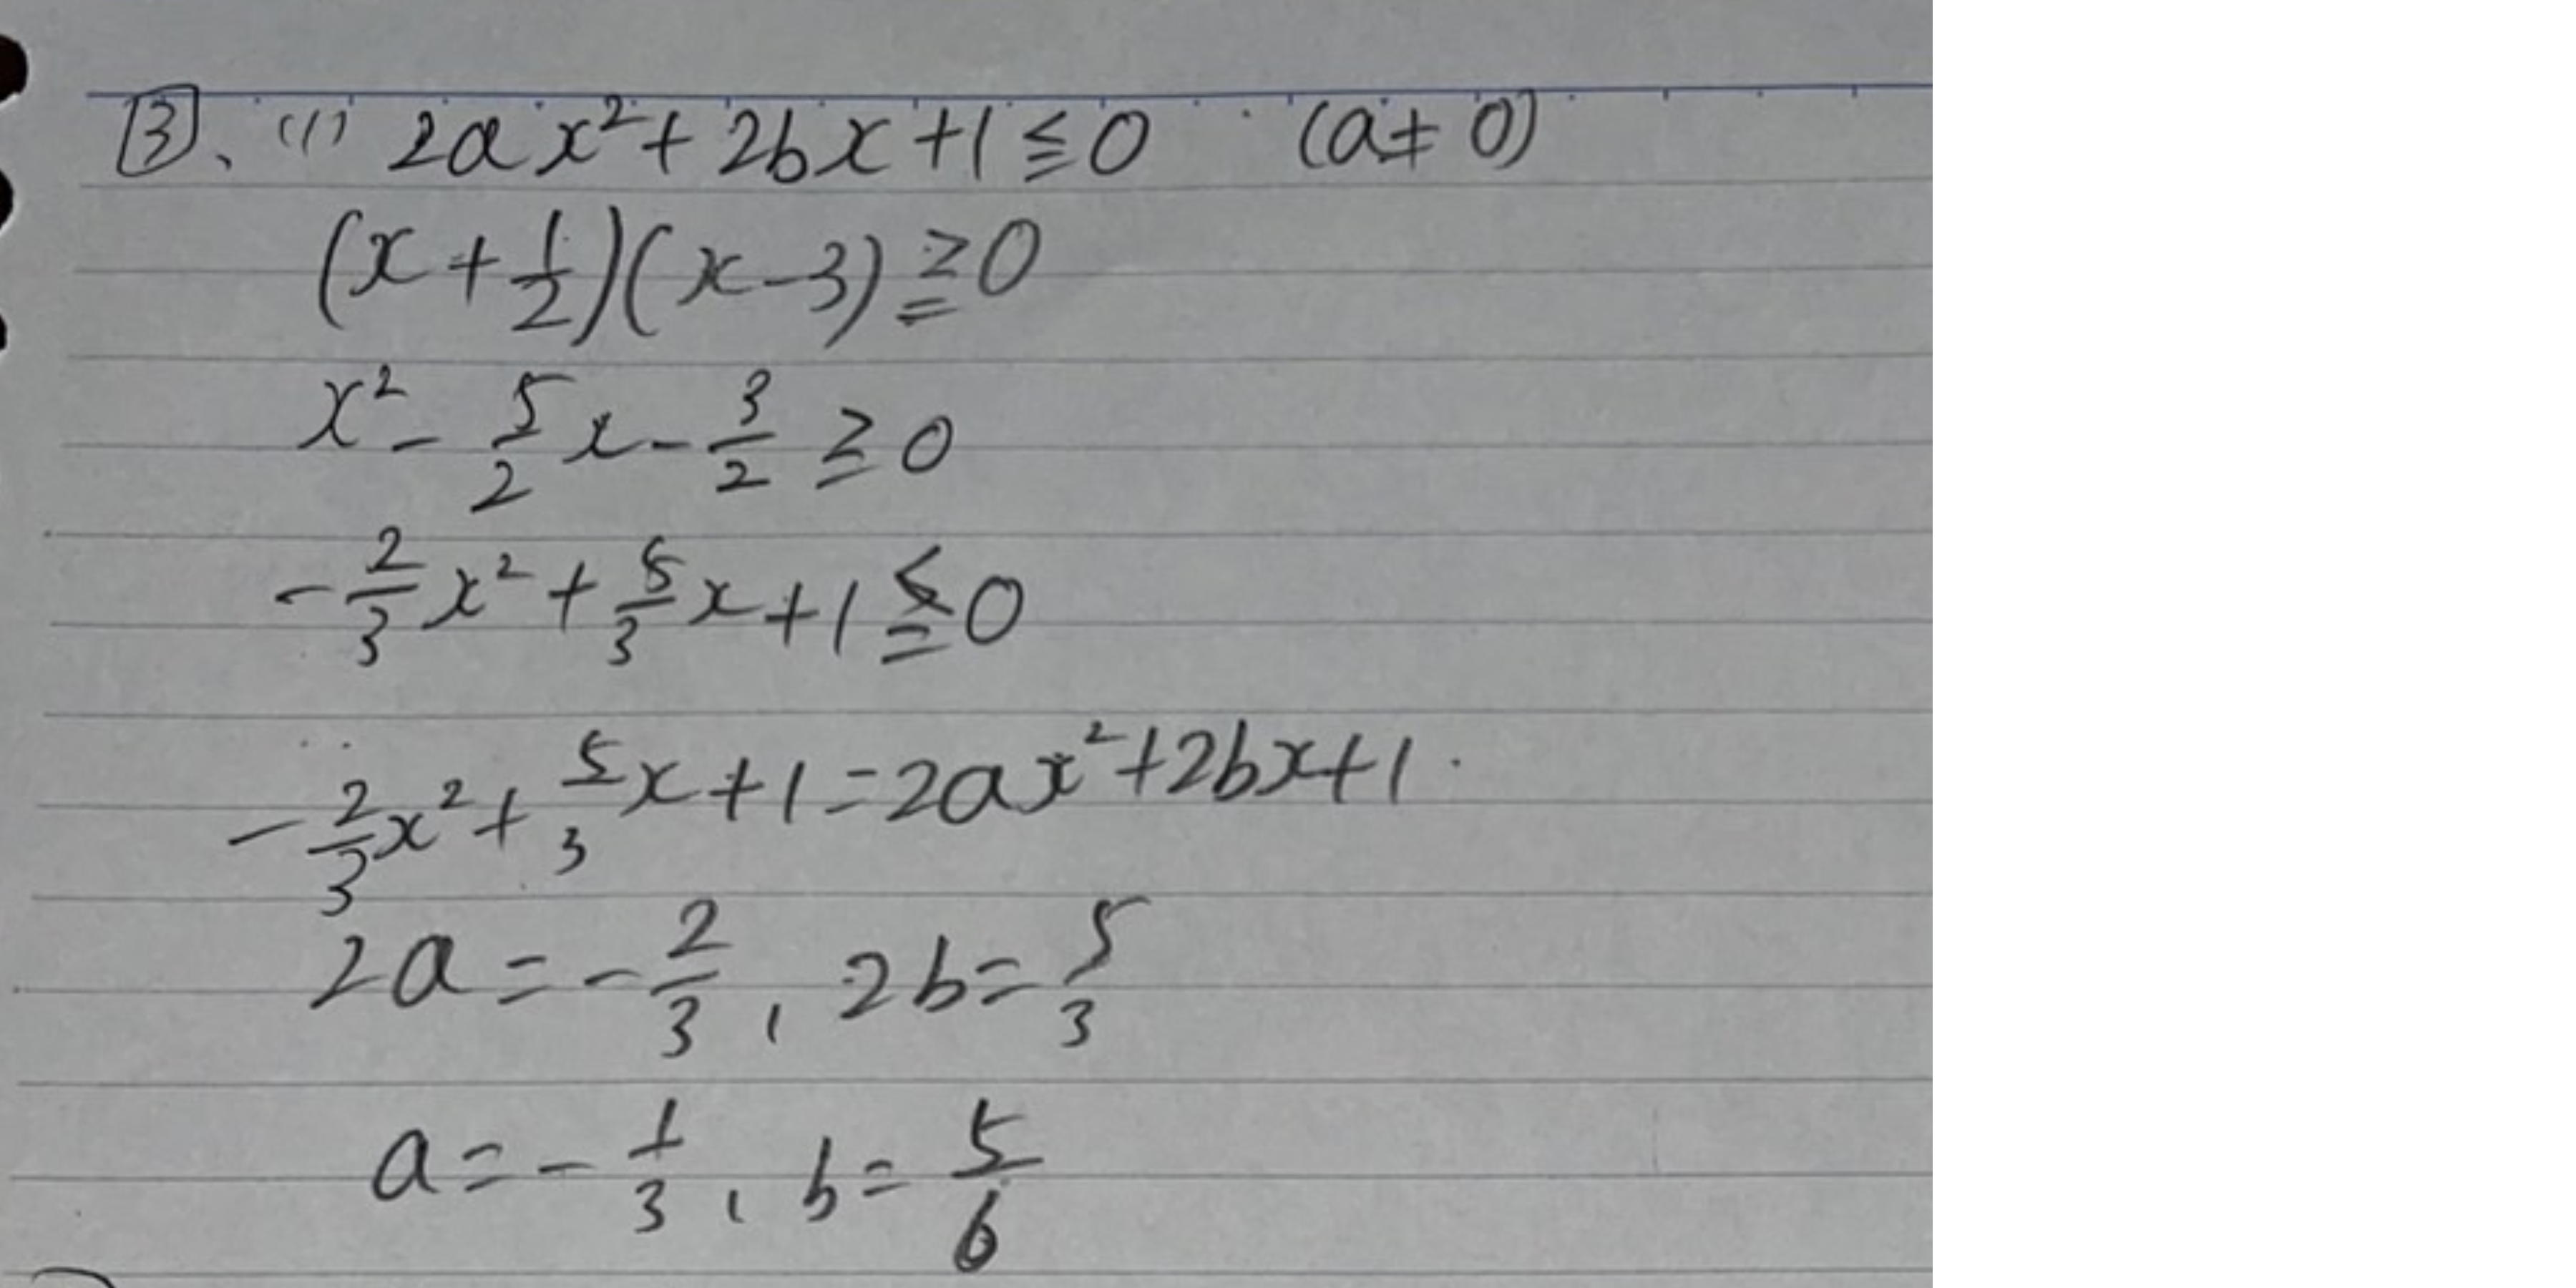 3、(1) 2ax²+2bx+1≦0 (a≠0)
(x+1/2)(x-3)≧0
x²-5/2x-3/2≧0
-2/3x²+5/3x+1≦0
-2/3x²+5/3x+1=2ax²+2bx+1.
2a=-2/3, 2b=5/3
a=-1/3, b=5/6